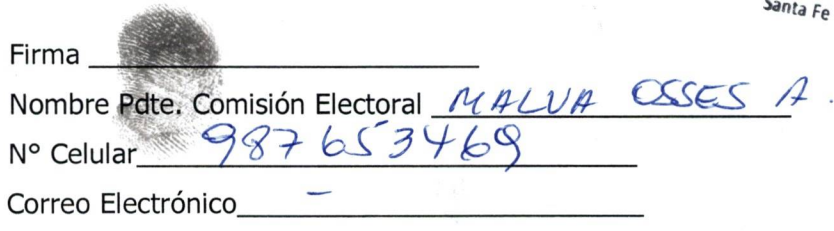 Santa Fe
Firma
Nombre Pdte. Comisión Electoral MALVA OSSES A.
N° Celular 987653469
Correo Electrónico -